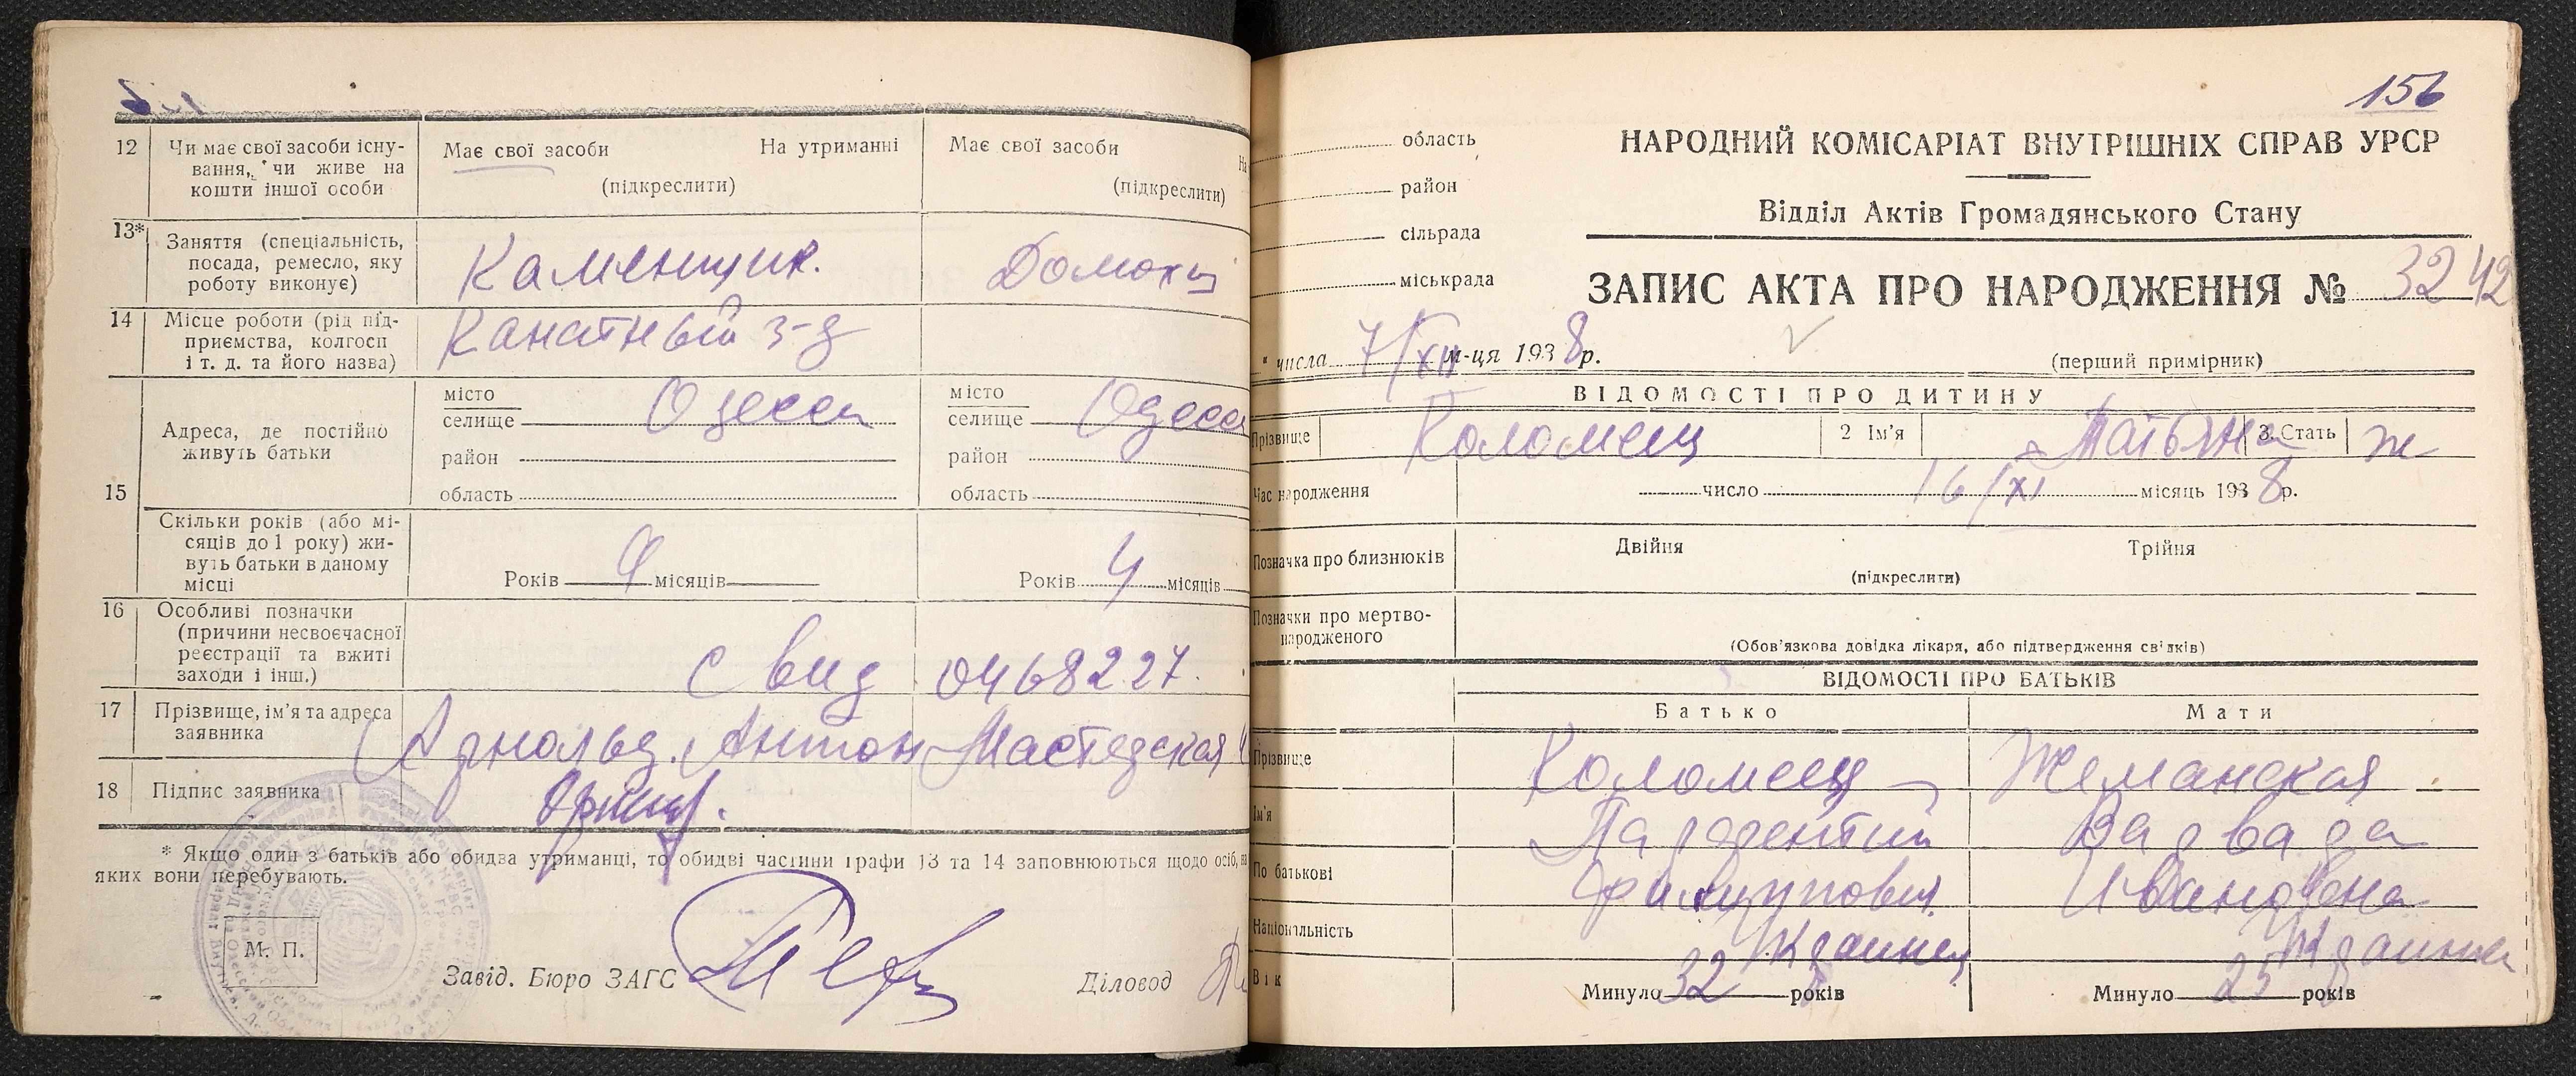 12 Чи має свої засоби існу-
вання, чи живе на
кошти іншої особи
Має свої засоби На утриманні
(підкреслити)
Має свої засоби На
(підкреслити)
13* Заняття (спеціальність,
посада, ремесло, яку
роботу виконує)
Каменщик.
Домохц
14 Місце роботи (рід під-
приємства, колгосп
і т. д. та його назва)
Канатный з-д
15 Адреса, де постійно
живуть батьки
місто
селище Одесса
район
область
місто
селище Одесса
район
область
Скільки років (або мі-
сяців до 1 року) жи-
вуть батьки в даному
місці
Років 9 місяців
Років 4 місяців
16 Особливі позначки
(причини несвоєчасної
реєстрації та вжиті
заходи і інш.)
Свид 0468227.
17 Прізвище, ім'я та адреса
заявника
Арнольд. Антон
18 Підпис заявника
* Якщо один з батьків або обидва утриманці, то обидві частини графи 13 та 14 заповнюються щодо осіб, на
яких вони перебувають.
М. П.
Завід. Бюро ЗАГС
Діловод
156
область
район
сільрада
міськрада
НАРОДНИЙ КОМІСАРІАТ ВНУТРІШНІХ СПРАВ УРСР
Відділ Актів Громадянського Стану
ЗАПИС АКТА ПРО НАРОДЖЕННЯ № 3242
" числа 7/XII м-ця 1938 р.
(перший примірник)
ВІДОМОСТІ ПРО ДИТИНУ
Прізвище Коломеец 2 Ім'я Татьяна 3. Стать ж
Час народження число 16/XI місяць 1938 р.
Позначка про близнюків Двійня Трійня
(підкреслити)
Позначки про мертво-
народженого
(Обов'язкова довідка лікаря, або підтвердження свідків)
ВІДОМОСТІ ПРО БАТЬКІВ
Батько Мати
Прізвище Коломеец Жеманская
Ім'я Парфентий Варвара
По батькові Филиппович. Ивановна
Національність Украинец Украинка
Вік Минуло 32 років Минуло 25 років